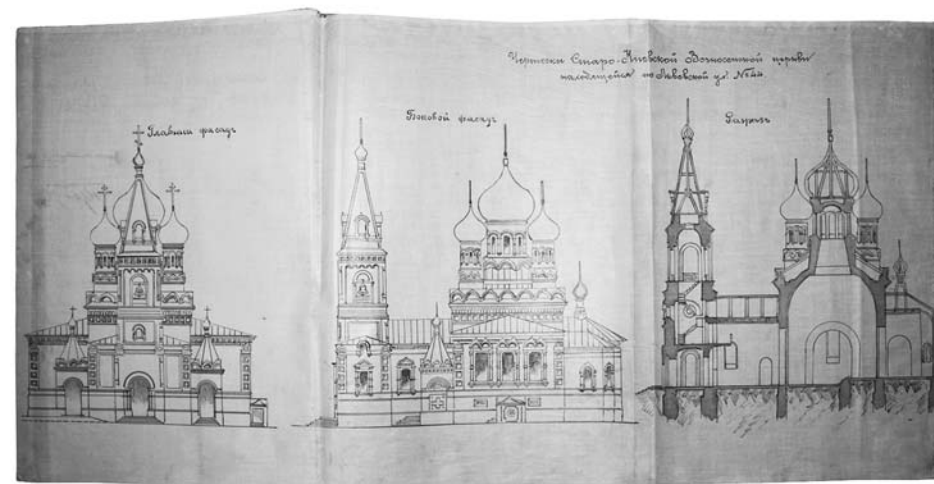 Чертежи Старо-Киевской Вознесенской церкви
находящейся по Львовской ул. № 44.
Главный фасадъ
Боковой фасадъ
Разрезъ